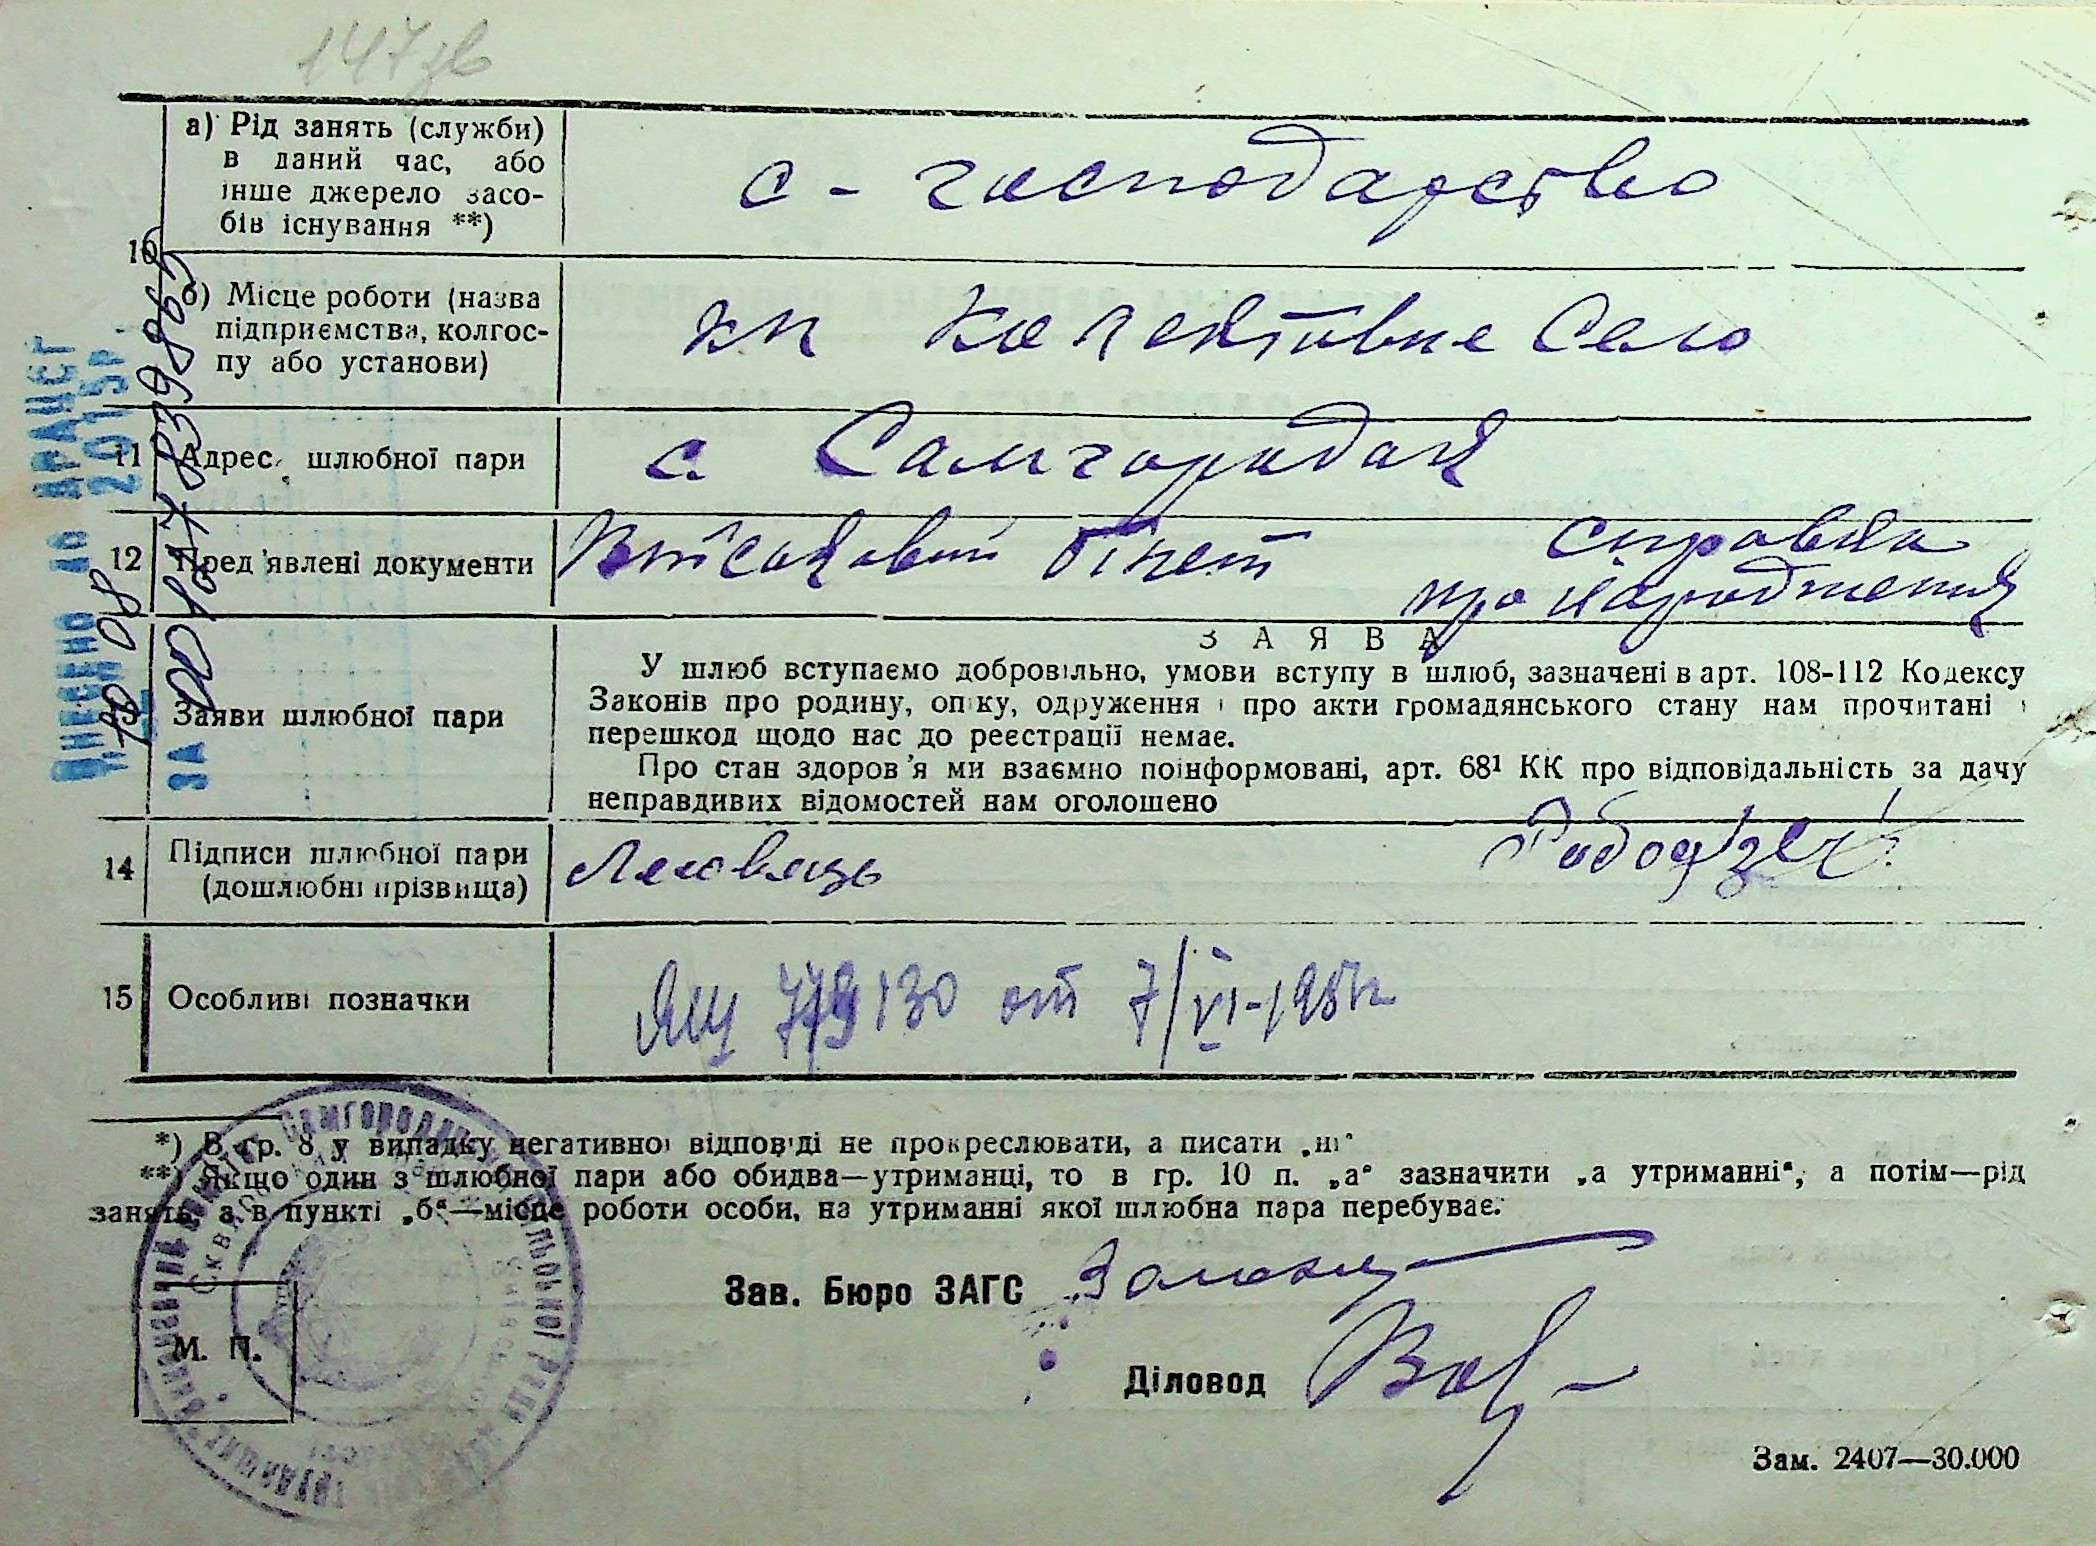 147зв
а) Рід занять (служби)
в даний час, або
інше джерело засо-
бів існування **)
с - господарство
10
б) Місце роботи (назва
підприємства, колгос-
пу або установи)
кк Колективне Село
11 Адреса шлюбної пари
с Самгородок
12 Пред'явлені документи
Військовий білет справка
про народження
13 Заяви шлюбної пари
З А Я В А
У шлюб вступаємо добровільно, умови вступу в шлюб, зазначені в арт. 108-112 Кодексу
Законів про родину, опіку, одруження і про акти громадянського стану нам прочитані і
перешкод щодо нас до реєстрації немає.
Про стан здоров'я ми взаємно поінформовані, арт. 68¹ КК про відповідальність за дачу
неправдивих відомостей нам оголошено
14 Підписи шлюбної пари
(дошлюбні прізвища)
15 Особливі позначки
ЯЩ 779130 от 7/VI-1951г
*) В гр. 8 у випадку негативної відповіді не прокреслювати, а писати „ні“
**) Якщо один з шлюбної пари або обидва—утриманці, то в гр. 10 п. „а“ зазначити „а утриманні“, а потім—рід
занять, а в пункті „б“—місце роботи особи, на утриманні якої шлюбна пара перебуває.
Зав. Бюро ЗАГС
М. П.
Діловод
Зам. 2407—30.000
ВНЕСЕНО ДО ДРАЦСГ
08 2015р.
ЗА